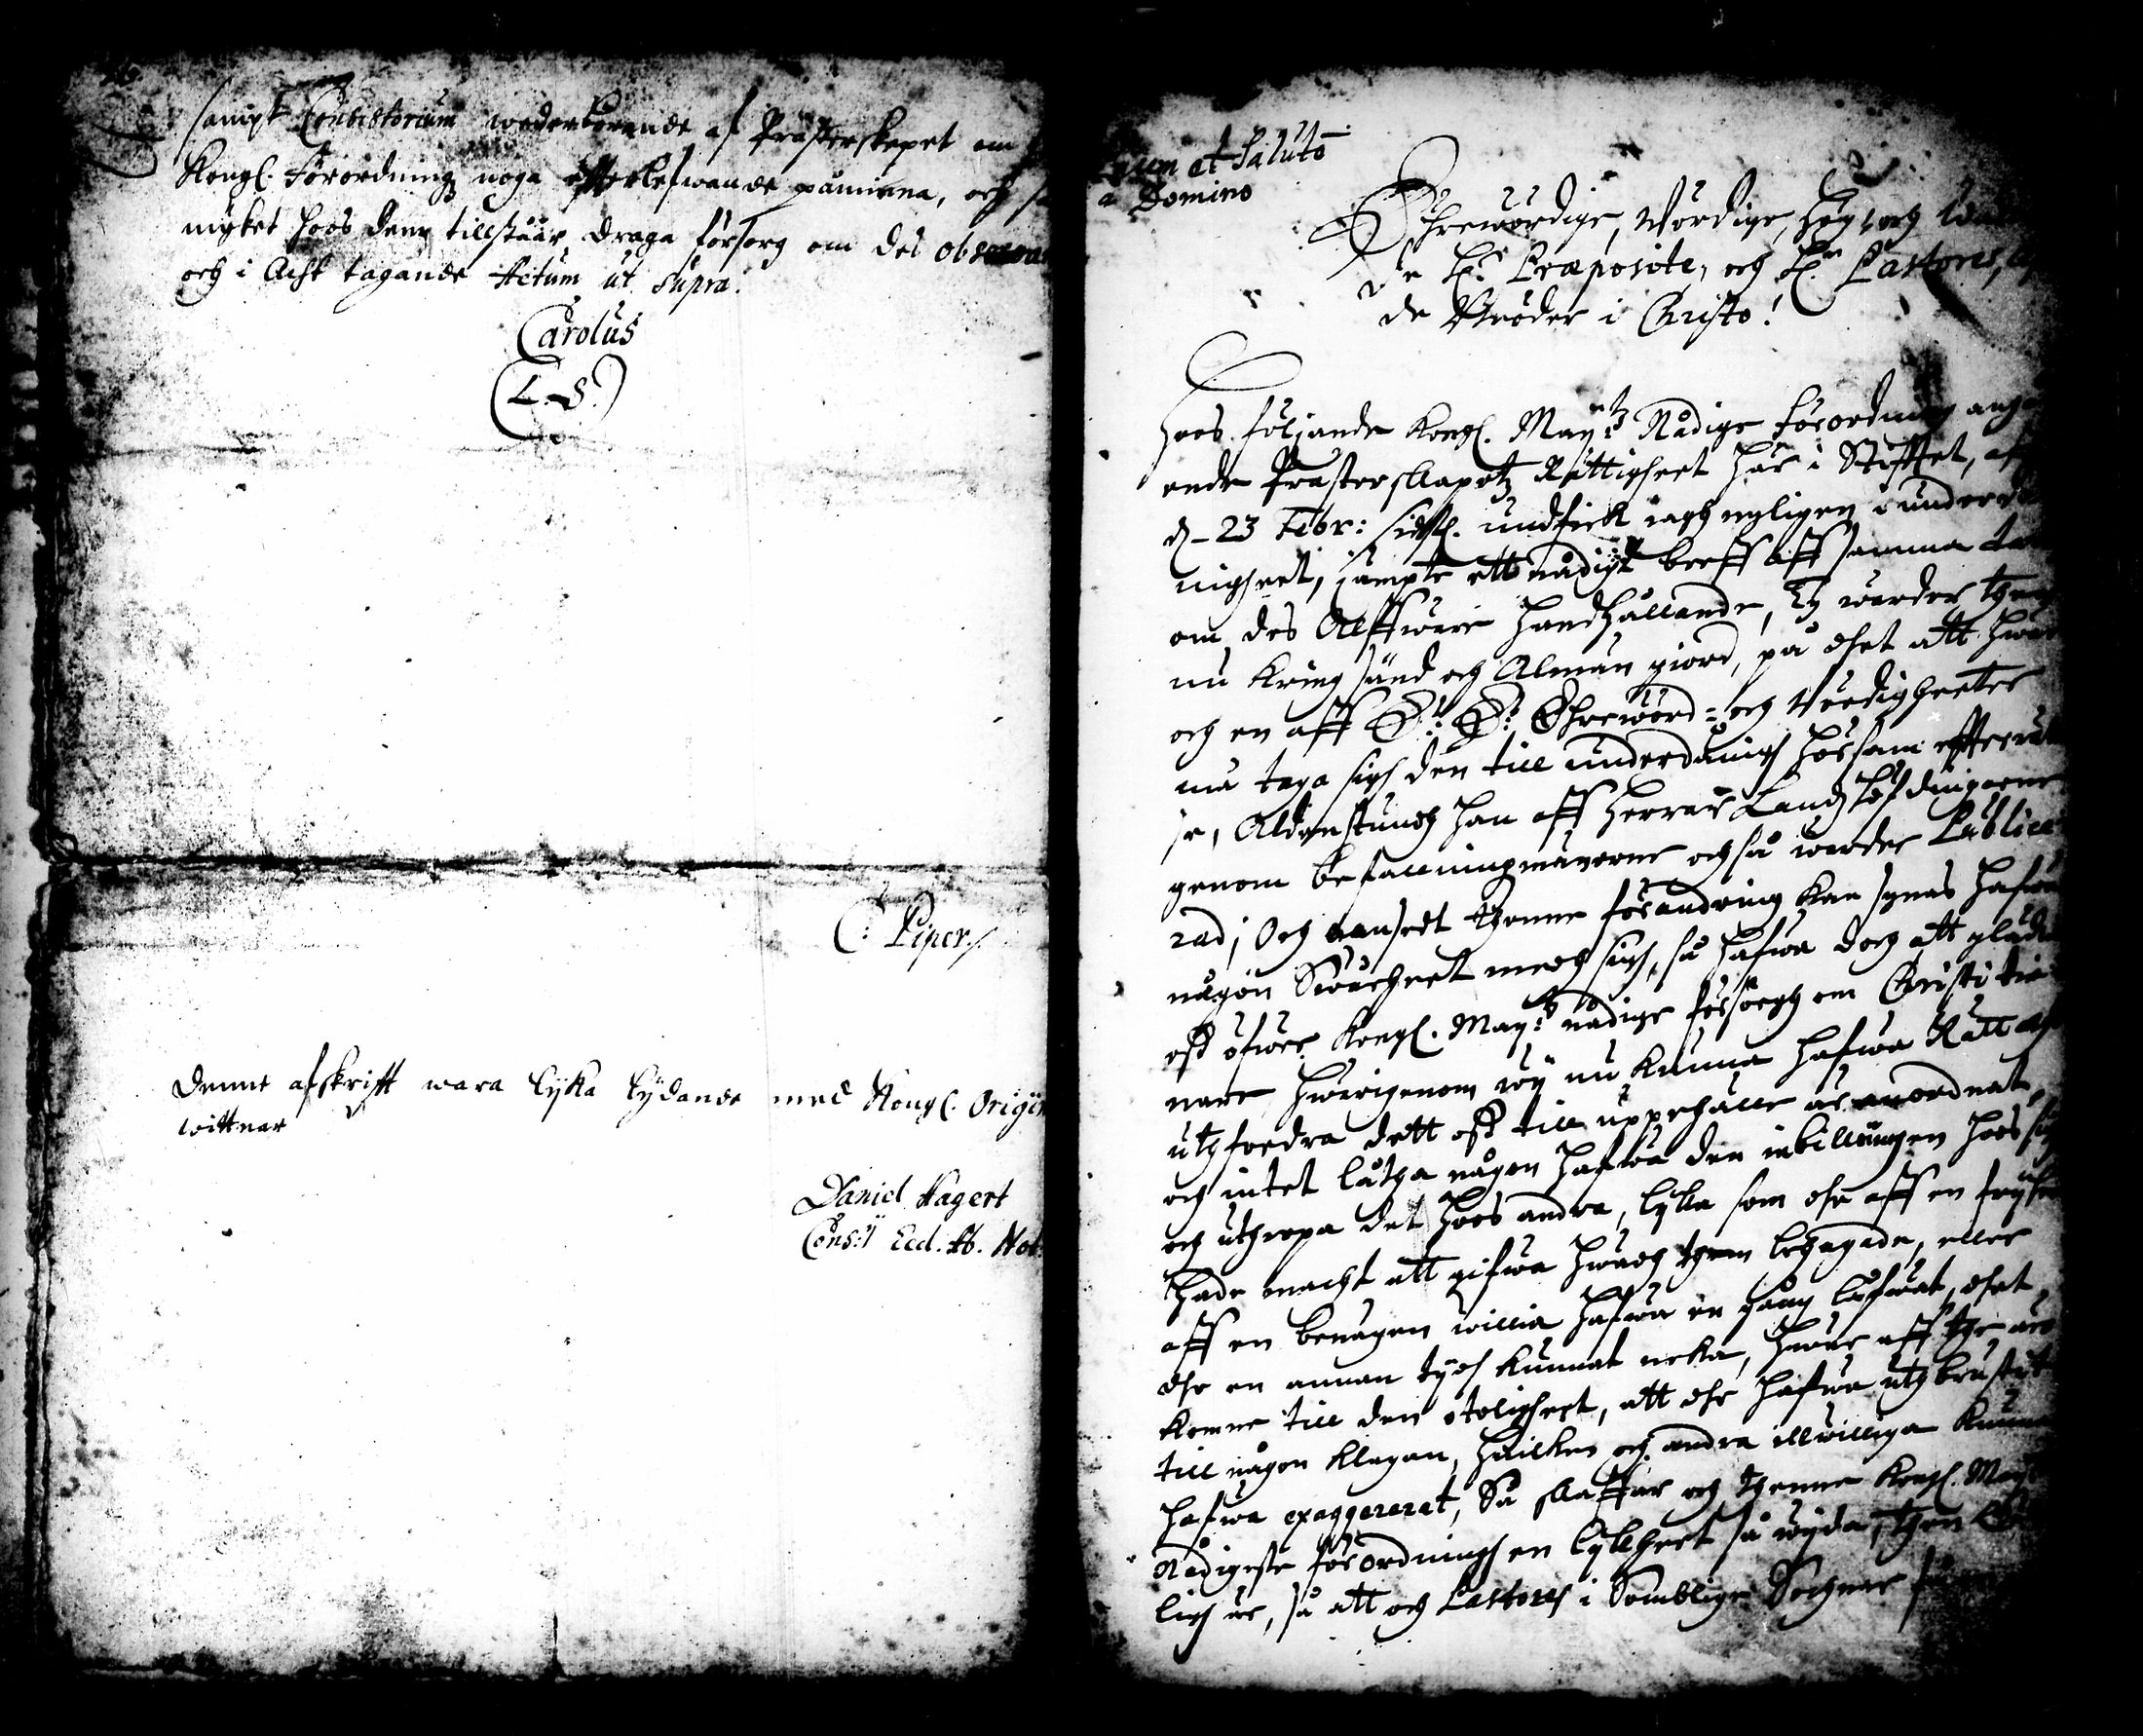 sampt Consistorium wederbörande af Prästerskapet om
Kongl. Förordning noga efterlefwande påminna, och så
myket hoos dem tillståår, draga försorg om des observa
och i Acht tagande Actum ut supra.
Carolus
(L.S.)
C: Piper./.
Denne afskrifft wara lyka lydande med Kongl. Origin
wittnar
Daniel Hagert
Cons:ij Eccl. Ab. Not:
et Salutē
Domino
Ehrewördige, Wördige, Hög och
de H:r Præposite, och H:r Pastores,
de Bröder i Christo!
Hoos följande Kongl. May:tz Nådige Förordning ang
ende Prästerskapetz Rättigheet här i Stifftet, af
d. 23 Febr: sidstl. undfick iagh nyligen i underdå
nigheet, jämpte ett nådigt breff aff samma
om des Alffware handhållande, Ty warder then
nu kring sänd och Almän giord, på thet att hwar
och en aff E:r E:r Ehrewörd- och Wördigheeter
må taga sigh den till underdånigh hörsam effterrät
se, Aldenstundh han aff Herrar Landzhöfdingarne
genom befallningzmännerne också warder Publice
rad; Och ansedt thenne förändring kan synas hafwa
någon Swårheet medh sigh, så hafwa doch att glädia
oss öfwer Kongl. May:tz nådige försorgh om Christi tie
nare hwarigenom wij nu kunna hafwa Rätt
utfordra dett oss till uppehälle är anordnat,
och intet låtha någon hafwa den inbillningen hoos sig
och uthropa det hoos andra, lyka som the aff en frij
hade macht att gifwa hwadh them behagade, eller
aff en benägen willia hafwa en gång låfwat, thet
the en annan tijdh kunnat neka, hwar aff the äro
komne till den otoligheet, att the hafwa uthbrustit
till någon klagan, hwilken och andra illwilliga kunna
hafwa exaggererat, Så skattar och thenne Kongl. May:tz
Nådigeste förordningh en lykheet så wijda,
ligh är, så att och Pastores i Somblige Sochnar